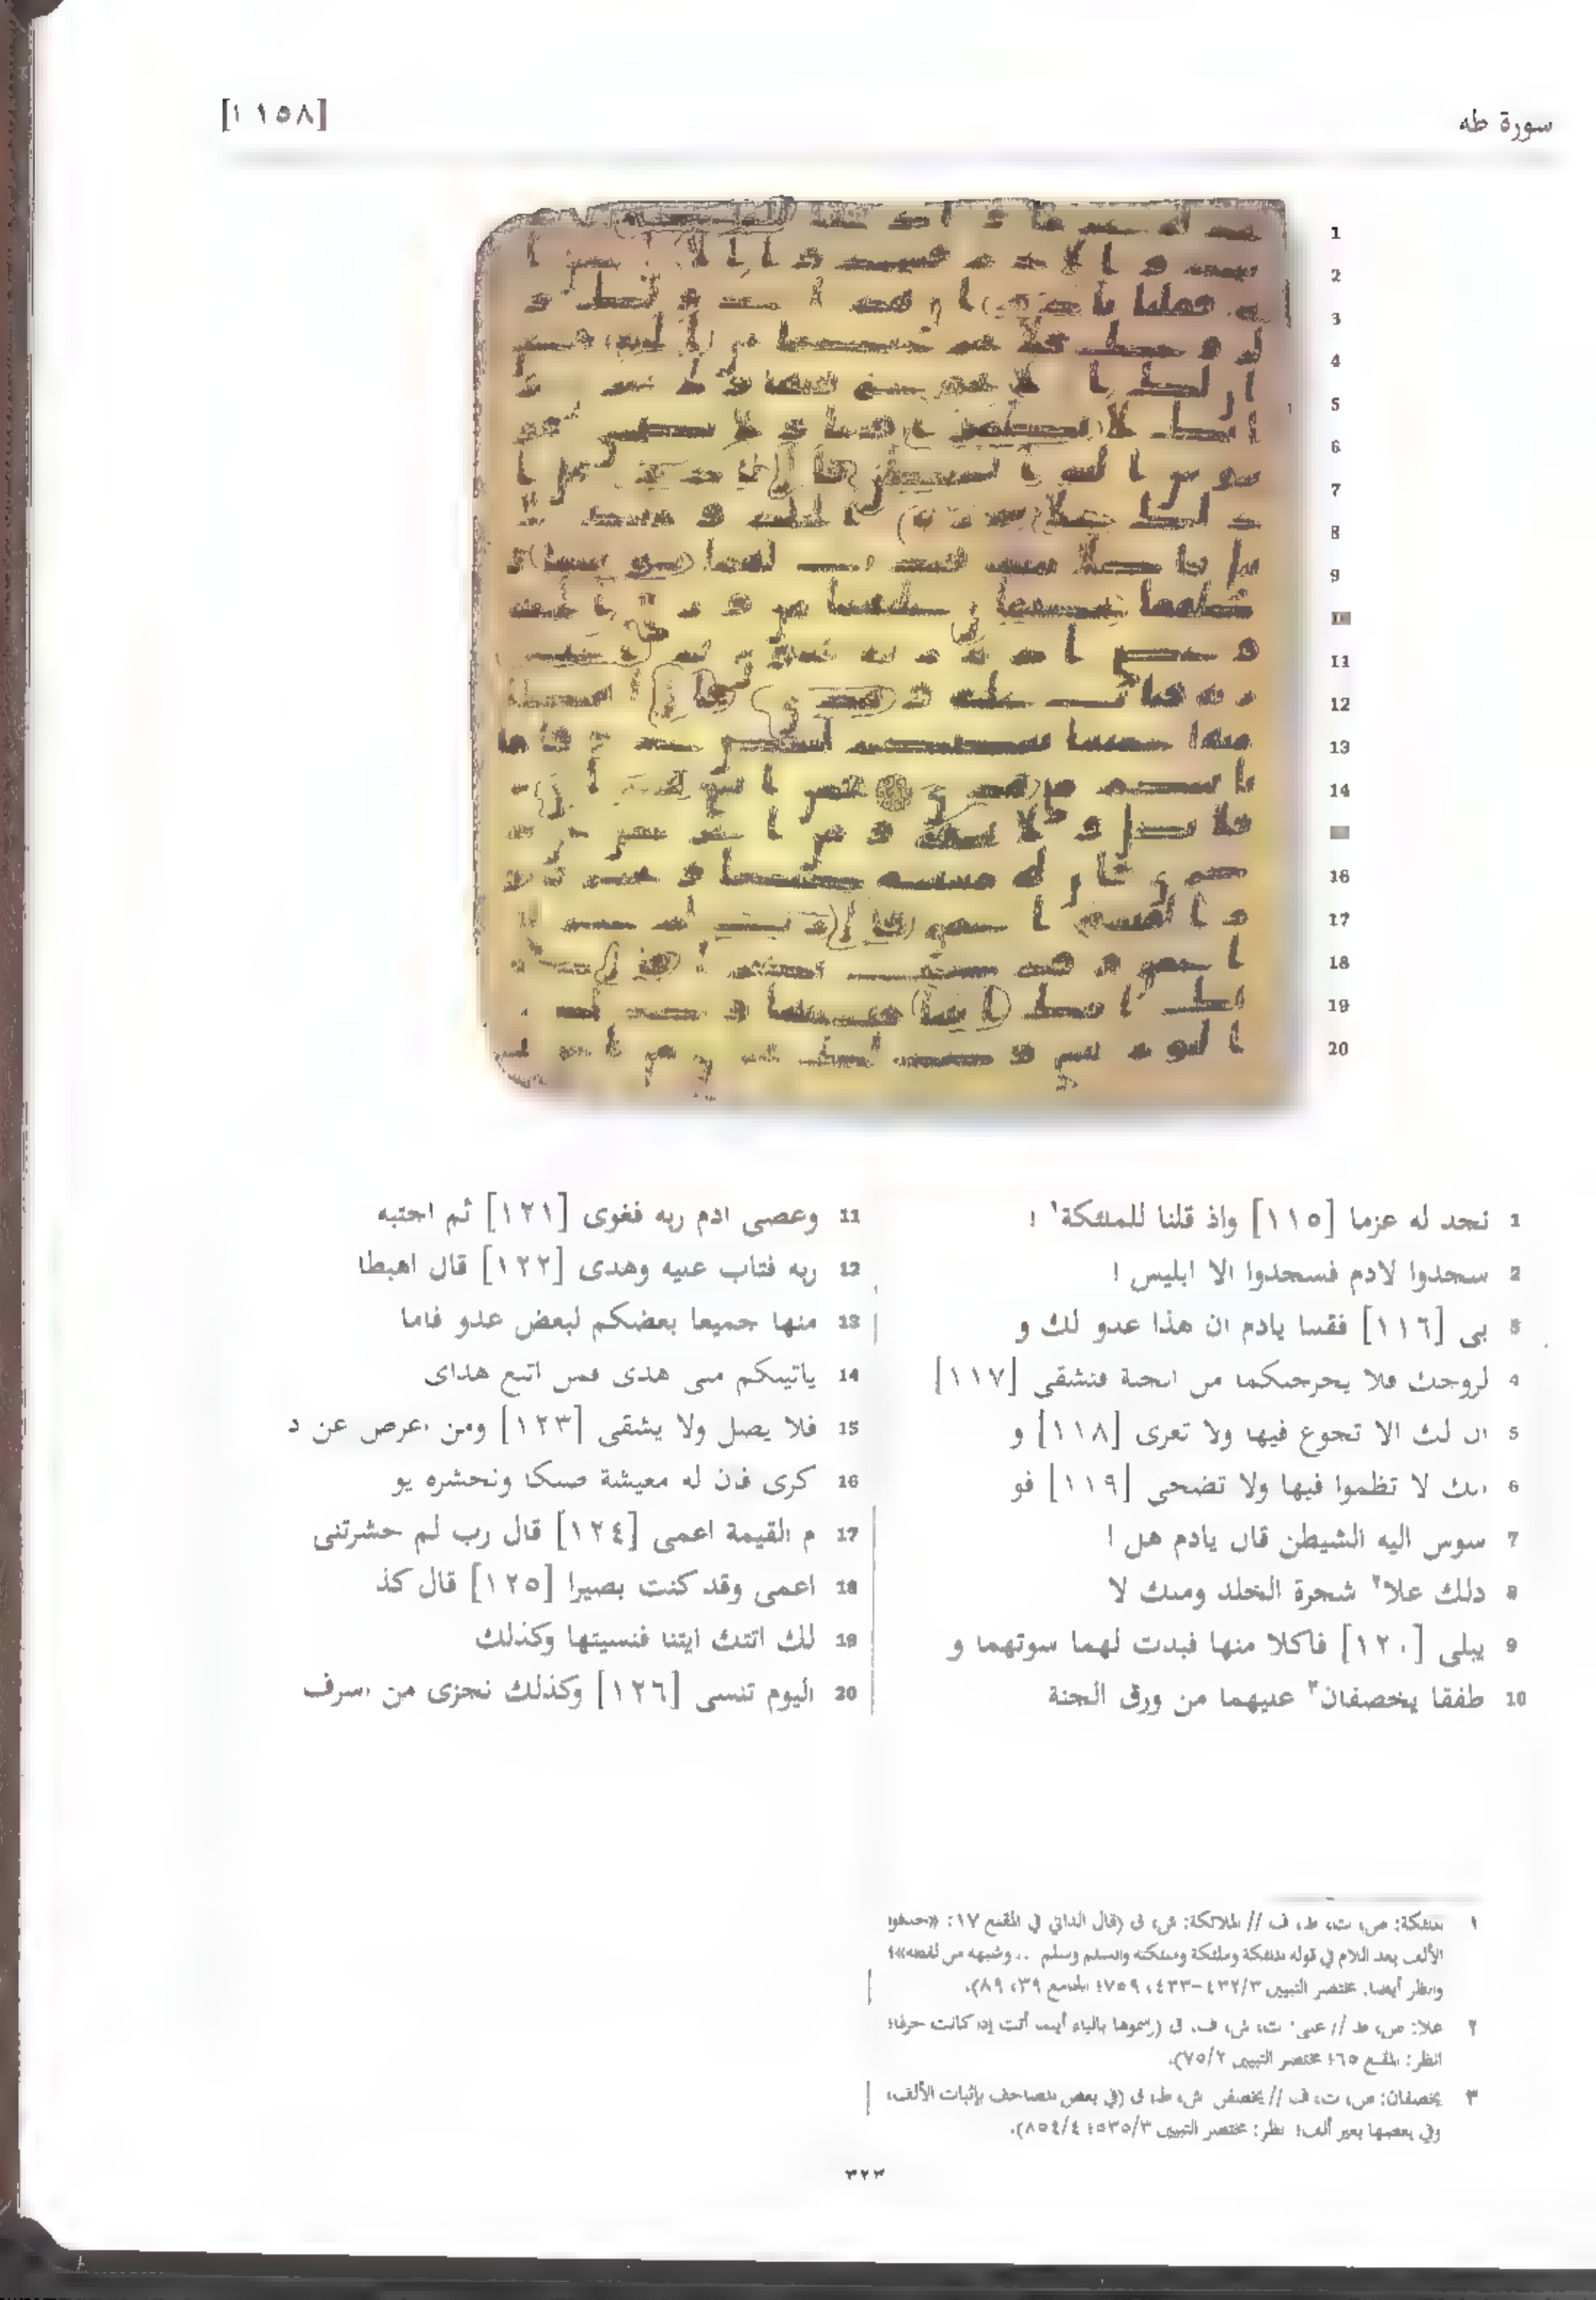 سورة طه
[١٥٨ ا]
1 نجد له عزما [١١٥] واذ قلنا للملئكة١ ا
2 سجدوا لادم فسجدوا الا ابليس ا
3 بى [١١٦] فقلنا يادم ان هذا عدو لك و
4 لزوجك فلا يخرجنكما من الجنة فتشقى [١١٧]
5 ان لك الا تجوع فيها ولا تعرى [١١٨] و
6 انك لا تظموا فيها ولا تضحى [١١٩] فو
7 سوس اليه الشيطن قال يادم هل ا
8 دلك علا٢ شجرة الخلد وملك لا
9 يبلى [١٢٠] فاكلا منها فبدت لهما سوتهما و
10 طفقا يخصفان٣ عليهما من ورق الجنة
11 وعصى ادم ربه فغوى [١٢١] ثم اجتبه
12 ربه فتاب عليه وهدى [١٢٢] قال اهبطا
13 منها جميعا بعضكم لبعض عدو فاما
14 ياتينكم منى هدى فمن اتبع هداى
15 فلا يضل ولا يشقى [١٢٣] ومن اعرض عن ذ
16 كرى فان له معيشة ضنكا ونحشره يو
17 م القيمة اعمى [١٢٤] قال رب لم حشرتنى
18 اعمى وقد كنت بصيرا [١٢٥] قال كذ
19 لك اتتك ايتنا فنسيتها وكذلك
20 اليوم تنسى [١٢٦] وكذلك نجزى من اسرف
١ للملئكة: ص، ت، ط، ف // للملائكة: ش، ق (قال الداني في المقنع ١٧: «حذفوا
الألف بعد اللام في قوله الملئكة وملئكة وملئكته والسلم وسلم .. وشبهه من لفظه»؛
وانظر أيضا: مختصر التبيين ٤٣٢/٣-٤٣٣، ٧٥٩؛ الجامع ٣٩، ٨٩).
٢ علا: ص، ط // على: ت، ش، ف، ق (رسموها بالياء أينما أتت إذا كانت حرفا؛
انظر: المقنع ٦٥؛ مختصر التبيين ٧٥/٢).
٣ يخصفان: ص، ت، ف // يخصفن: ش، ط، ق (في بعض المصاحف بإثبات الألف،
وفي بعضها بغير ألف؛ انظر: مختصر التبيين ٥٣٥/٣؛ ٨٥٤/٤).
٣٢٣